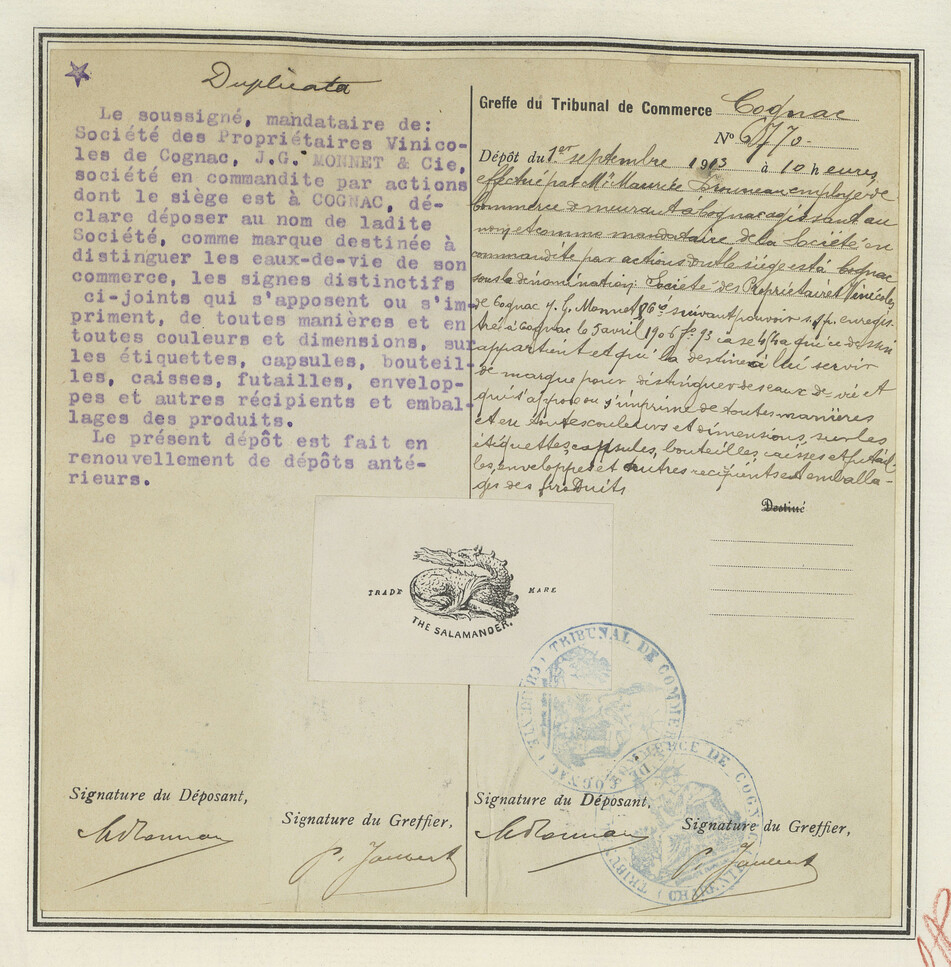 Duplicata
Le soussigné, mandataire de:
Société des Propriétaires Vinico-
les de Cognac, J.G. MONNET & Cie,
société en commandite par actions
dont le siège est à COGNAC, dé-
clare déposer au nom de ladite
Société, comme marque destinée à
distinguer les eaux-de-vie de son
commerce, les signes distinctifs
ci-joints qui s'apposent ou s'im-
priment, de toutes manières et en
toutes couleurs et dimensions, sur
les étiquettes, capsules, bouteil-
les, caisses, futailles, envelop-
pes et autres récipients et embal-
lages des produits.
Le présent dépôt est fait en
renouvellement de dépôts anté-
rieurs.
Greffe du Tribunal de Commerce Cognac
Nº 6770
Dépôt du 1er septembre 1913 à 10 heures
effectué par Mr Maurice employé de
commerce demeurant à Cognac agissant au
nom et comme mandataire de la Société en
commandite par actions dont le siège est à Cognac
sous la dénomination: Société des Propriétaires Vinicoles
de Cognac J. G. Monnet & Cie suivant pouvoir s.s.p. enregis
tré à Cognac le 5 avril 1906 fo 93 case
appartient et qui la destine à lui servir
de marque pour distinguer des eaux de vie et
qui s'appose ou s'imprime de toutes manières
et en toutes couleurs et dimensions, sur les
étiquettes, capsules, bouteilles, caisses et futail-
les, enveloppes et autres récipients et emballa-
ges des produits
Destiné
TRADE MARK
THE SALAMANDER.
TRIBUNAL DE COMMERCE DE COGNAC
TRIBUNAL DE COMMERCE DE COGNAC (CHARENTE)
Signature du Déposant,
Signature du Greffier,
P. Jaubert
Signature du Déposant,
Signature du Greffier,
P. Jaubert